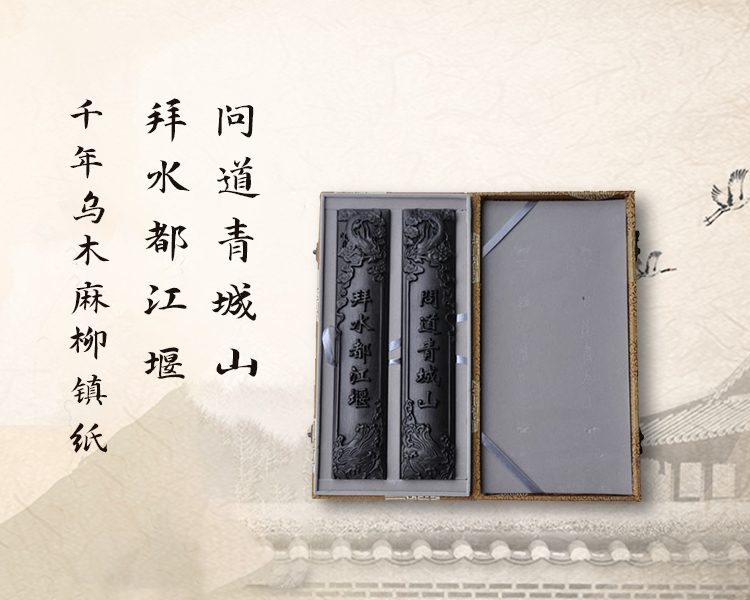 问道青城山
拜水都江堰
千年乌木麻柳镇纸
問道青城山
拜水都江堰